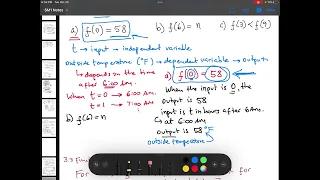 SM1 Notes
a) f(0) = 58 b) f(6) = n c) f(3) < f(9)
t → input → independent variable
outside temperature (°F) → dependent variable → output
↳ depends on the time after 6:00 am
a) f(0) = 58
When t = 0 → 6:00 am
t = 1 → 7:00 am
When the input is 0, the
output is 58
input is t in hours after 6 am.
↳ at 6:00 am
output is 58 °F
outside temperature
b) f(6) = n